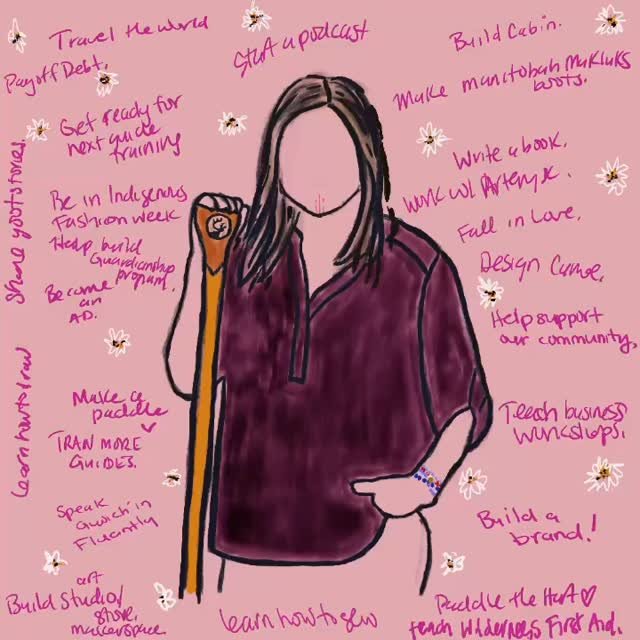 Travel the world
Start a podcast
Build Cabin.
Payoff Debt.
Make manitobah Mukluks
boots.
Get ready for
next guide
training
Write a book.
Share stories.
Be in Indigenous
Fashion week
Work w/
Fall in Love.
Help build
Guardianship
program.
Design Canoe.
Become
an
AD.
Help support
our community,
Learn how to draw
Make a
paddle
TRAN MORE
GUIDES.
Teach business
workshops.
Speak
Gwich'in
Fluently
Build a
brand!
art
Build Studio/
store,
makerspace
learn how to sew
Paddle the Hart ♡
teach Wilderness First Aid.